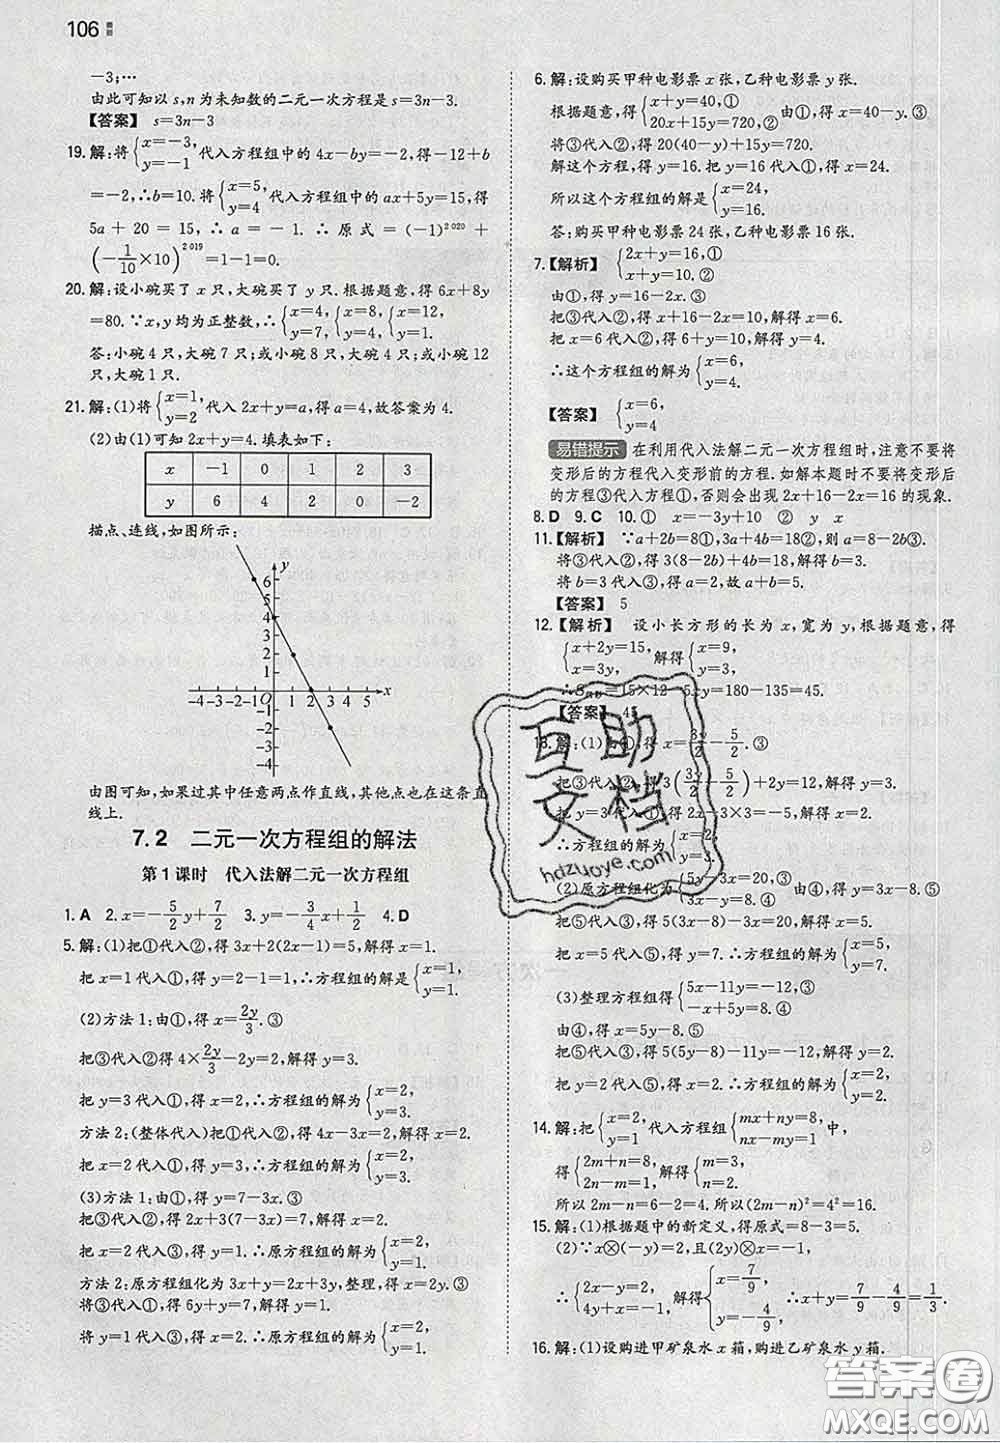 106
-3;…
由此可知以 s,n 为未知数的二元一次方程是 s=3n-3.
【答案】 s=3n-3
19.解:将{x=-3, y=-1 代入方程组中的 4x-by=-2,得-12+b
=-2,∴b=10.将{x=5, y=4 代入方程组中的 ax+5y=15,得
5a+20=15,∴a=-1.∴原式=(-1)²⁰²⁰+
(-1/10×10)²⁰¹⁹=1-1=0.
20.解:设小碗买了 x 只,大碗买了 y 只.根据题意,得 6x+8y
=80.∵x,y 均为正整数,∴{x=4, y=7, {x=8, y=4, {x=12, y=1.
答:小碗 4 只,大碗 7 只;或小碗 8 只,大碗 4 只;或小碗 12
只,大碗 1 只.
21.解:(1)将{x=1, y=2 代入 2x+y=a,得 a=4,故答案为 4.
(2)由(1)可知 2x+y=4.填表如下:
x -1 0 1 2 3
y 6 4 2 0 -2
描点、连线,如图所示:
y
6
5
4
3
2
1
-4 -3 -2 -1 O 1 2 3 4 5 x
-1
-2
-3
-4
由图可知,如果过其中任意两点作直线,其他点也在这条直
线上.
7.2 二元一次方程组的解法
第 1 课时 代入法解二元一次方程组
1.A 2.x=-5/2y+7/2 3.y=-3/4x+1/2 4.D
5.解:(1)把①代入②,得 3x+2(2x-1)=5,解得 x=1.
把 x=1 代入①,得 y=2-1=1,∴方程组的解是{x=1, y=1.
(2)方法 1:由①,得 x=2y/3.③
把③代入②得 4×2y/3-2y=2,解得 y=3.
把 y=3 代入①,得 x=2,∴方程组的解为{x=2, y=3.
方法 2:(整体代入)由①,得 4x-3x=2,解得 x=2.
把 x=2 代入①,得 y=3.∴方程组的解为{x=2, y=3.
(3)方法 1:由①,得 y=7-3x.③
把③代入②,得 2x+3(7-3x)=7,解得 x=2.
把 x=2 代入③,得 y=1.∴原方程组的解为{x=2, y=1.
方法 2:原方程组化为 3x+y=2x+3y,整理,得 x=2y.③
将③代入①,得 6y+y=7,解得 y=1.
将 y=1 代入①,得 x=2.∴原方程组的解为{x=2, y=1.
6.解:设购买甲种电影票 x 张,乙种电影票 y 张.
根据题意,得{x+y=40,① 20x+15y=720,② 由①,得 x=40-y.③
将③代入②,得 20(40-y)+15y=720.
解这个方程,得 y=16.把 y=16 代入③,得 x=24.
所以这个方程组的解是{x=24, y=16.
答:购买甲种电影票 24 张,乙种电影票 16 张.
7.【解析】 {2x+y=16,① x+y=10.②
由①,得 y=16-2x.③
把③代入②,得 x+16-2x=10,解得 x=6.
把 x=6 代入②,得 6+y=10,解得 y=4.
∴这个方程组的解为{x=6, y=4.
【答案】 {x=6, y=4
易错提示 在利用代入法解二元一次方程组时,注意不要将
变形后的方程代入变形前的方程.如解本题时不要将变形后
的方程③代入方程①,否则会出现 2x+16-2x=16 的现象.
8.D 9.C 10.① x=-3y+10 ② y x
11.【解析】 ∵a+2b=8①,3a+4b=18②,则 a=8-2b③.
将③代入②,得 3(8-2b)+4b=18,解得 b=3.
将 b=3 代入③,得 a=2,故 a+b=5.
【答案】 5
12.【解析】 设小长方形的长为 x,宽为 y,根据题意,得
{x+2y=15, x=3y, 解得{x=9, y=3.
∴S阴影=15×12-5xy=180-135=45.
【答案】 45
13.解:(1)由①,得 x=3y/2-5/2.③
把③代入②,得 3(3y/2-5/2)+2y=12,解得 y=3.
把 y=3 代入①,得 2x-3×3=-5,解得 x=2.
∴方程组的解为{x=2, y=3.
(2)原方程组化为{5x-3y=20,③ y=3x-8.⑤
把⑤代入③,得 5(3x-8)-3x=20,解得 x=5.
把 x=5 代入⑤,得 y=7,∴方程组的解为{x=5, y=7.
(3)整理方程组得{5x-11y=-12,③ -x+5y=8.④
由④,得 x=5y-8.⑤
把⑤代入③,得 5(5y-8)-11y=-12,解得 y=2.
把 y=2 代入⑤,得 x=2,∴方程组的解为{x=2, y=2.
14.解:把{x=2, y=1 代入方程组{mx+ny=8, nx-my=1 中,
得{2m+n=8, 2n-m=1, 解得{m=3, n=2.
所以 2m-n=6-2=4.所以(2m-n)²=4²=16.
15.解:(1)根据题中的新定义,得原式=8-3=5.
(2)∵x⊗(-y)=2,且(2y)⊗x=-1,
∴{2x-y=2, 4y+x=-1, 解得{x=7/9, y=-4/9, ∴x+y=7/9-4/9=1/3.
16.解:(1)设购进甲矿泉水 x 箱,购进乙矿泉水 y 箱.
互助
文档
hdzuoye.com
答案圈
MXQE.COM